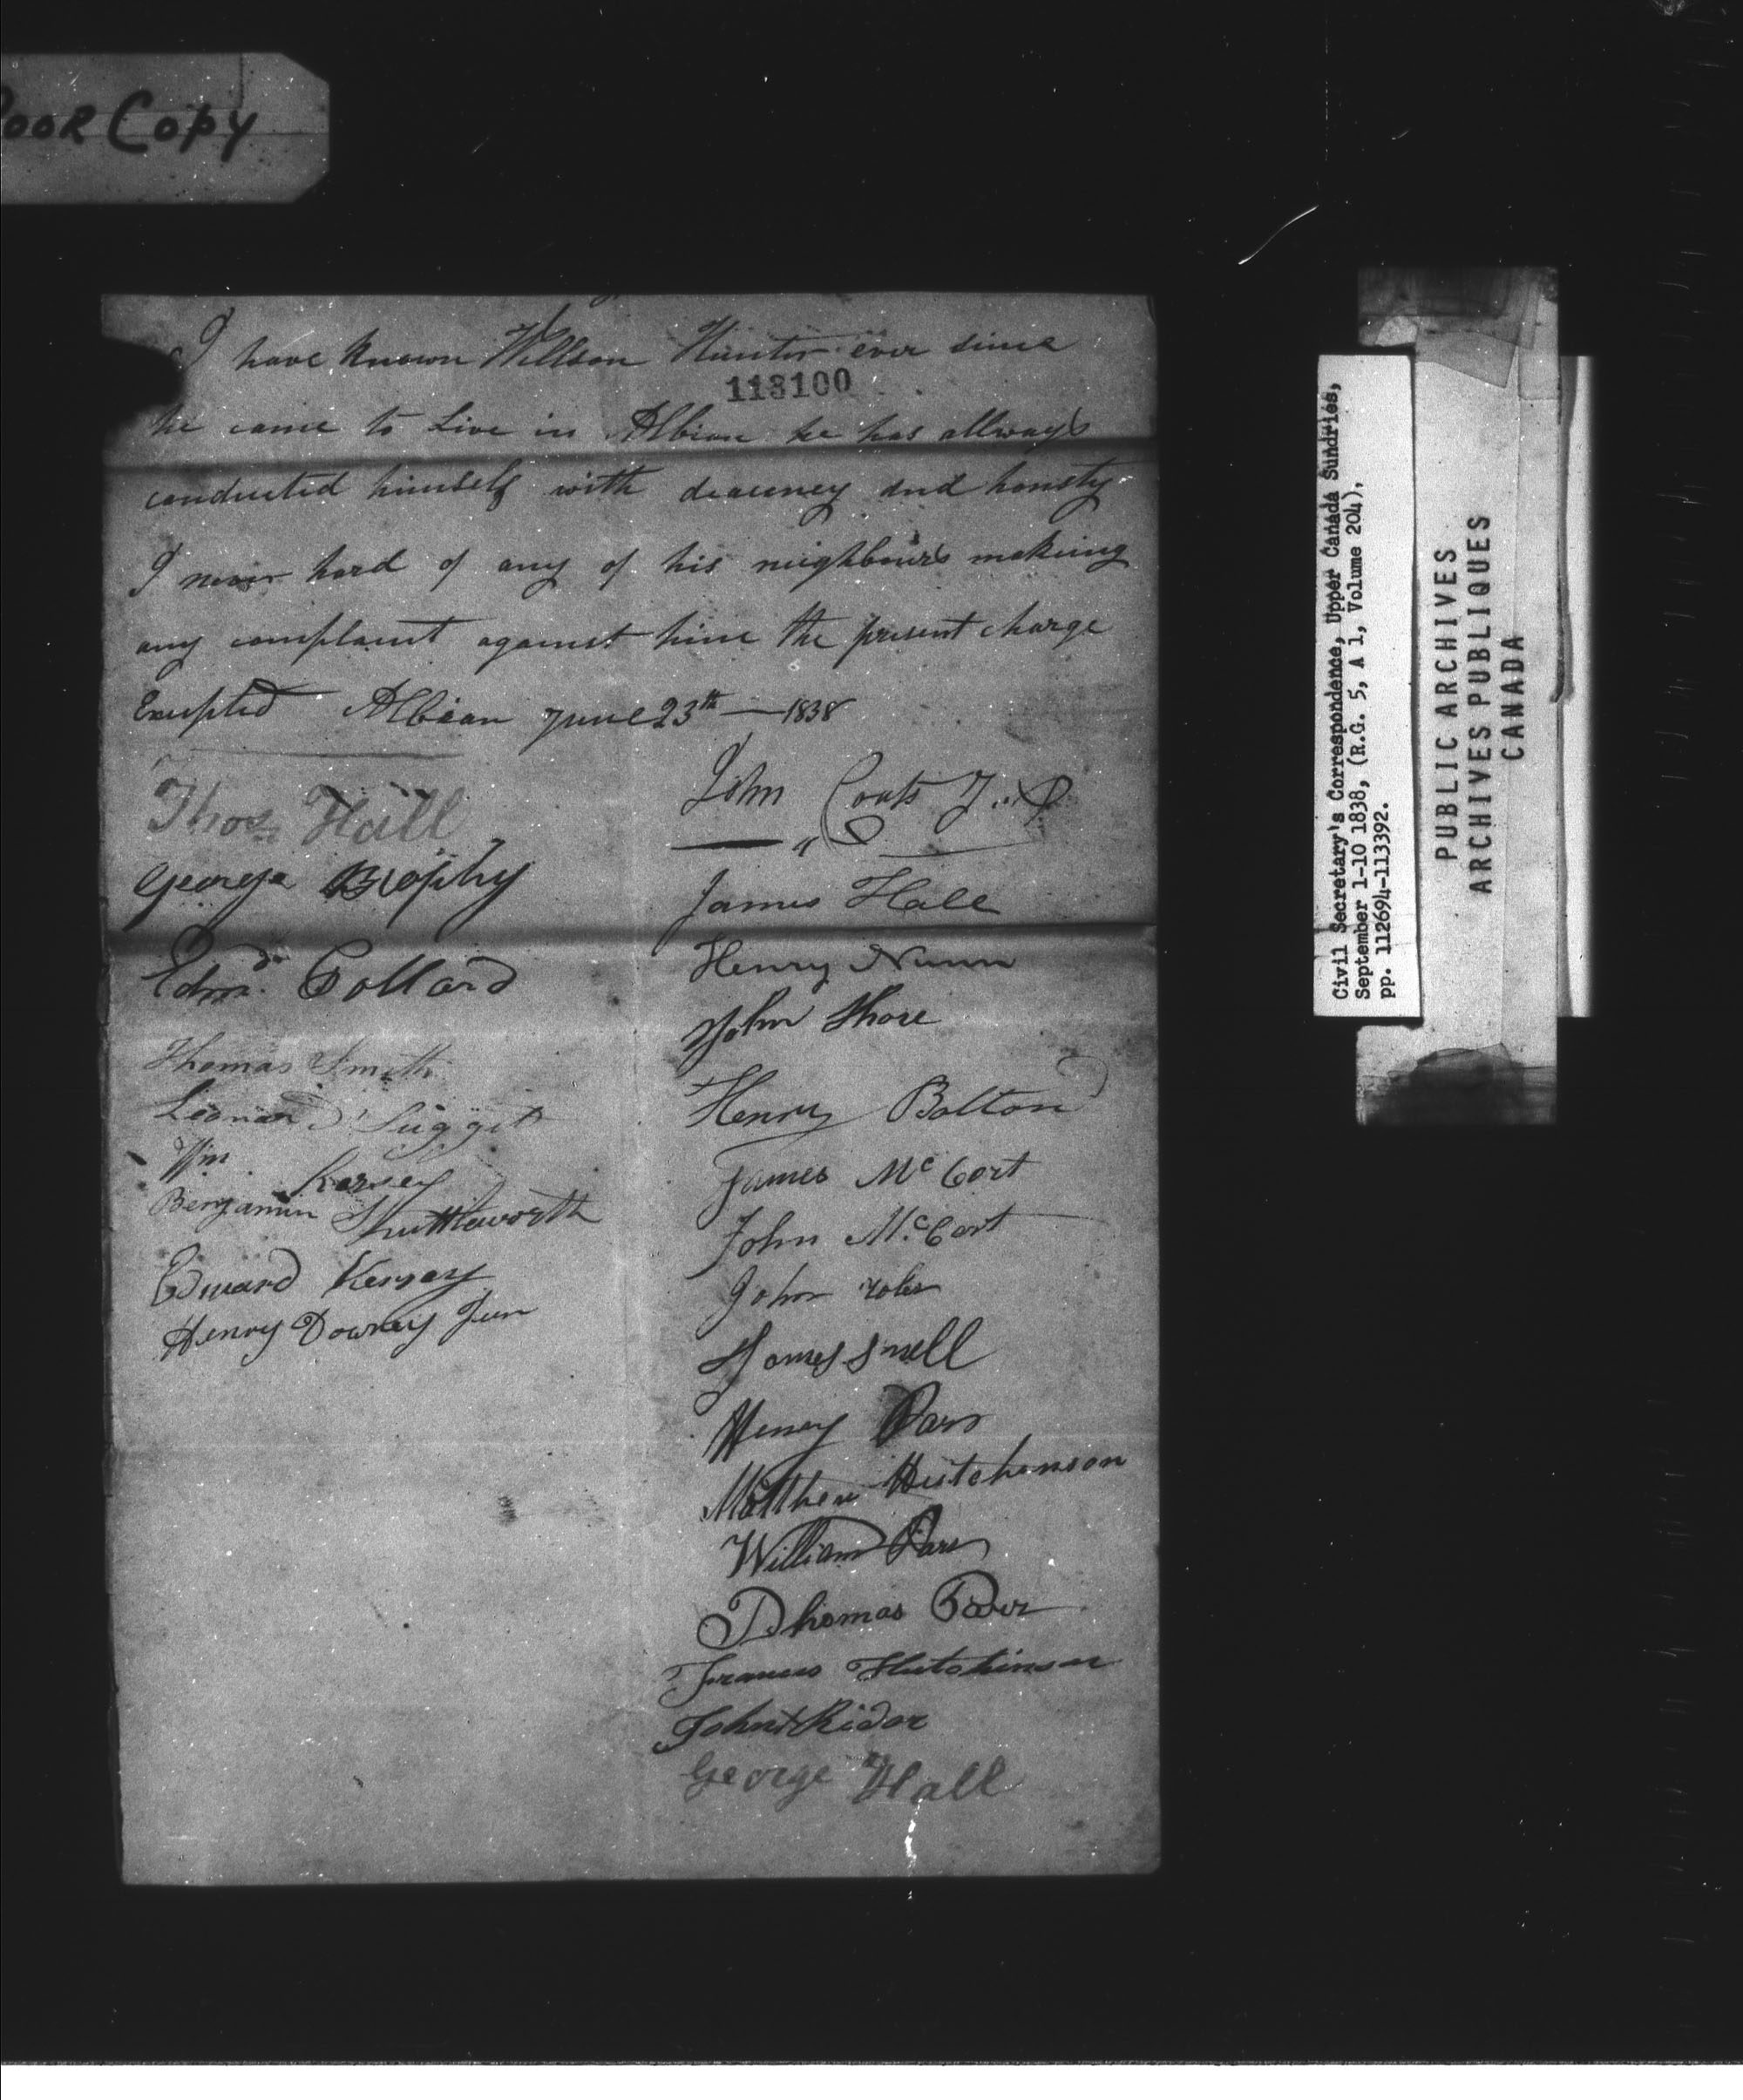 Poor Copy
I have known Willson Hunter ever since
113100
he came to Live in Albion he has allways
conducted himself with deacency and honsty
I never hard of any of his neighbours makeing
any complaint against him the present charge
Exsepted Albion June 23th — 1838
Thos Hall
George Brophy
Edmd. Collard
Thomas Smith
Leonard Sugget
Wm. Kersey
Benjamin Shuttleworth
Edward Kersey
Henry Downey Jun
John Coats J. P
James Hall
Henry Nunn
John Shore
Henry Bolton
James McCort
John McCort
John
James Snell
Henry Parr
Matthew Hutchenson
William Parr
Thomas Parr
Francis Hutchinson
John Ridor
George Hall
Civil Secretary's Correspondence, Upper Canada Sundries,
September 1-10 1838, (R.G. 5, A 1, Volume 204),
pp. 112694-113392.
PUBLIC ARCHIVES
ARCHIVES PUBLIQUES
CANADA